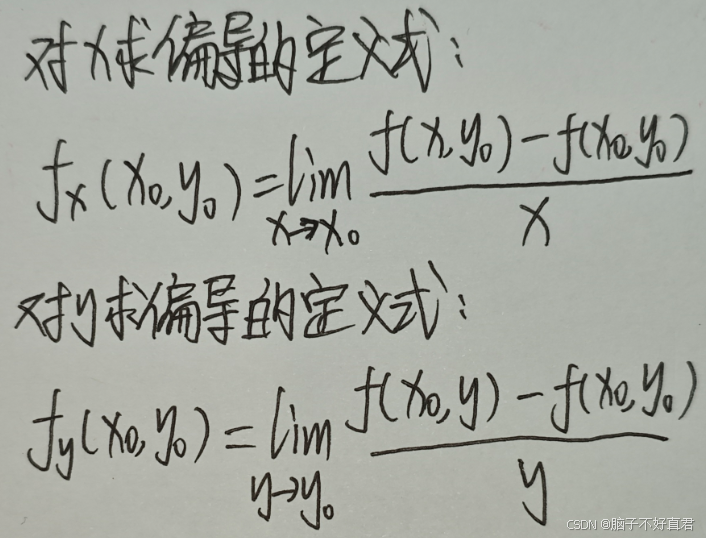 对x求偏导的定义式：
fx(x₀,y₀)=lim x→x₀ f(x,y₀)-f(x₀,y₀) / x
对y求偏导的定义式：
fy(x₀,y₀)=lim y→y₀ f(x₀,y)-f(x₀,y₀) / y
CSDN @脑子不好直君